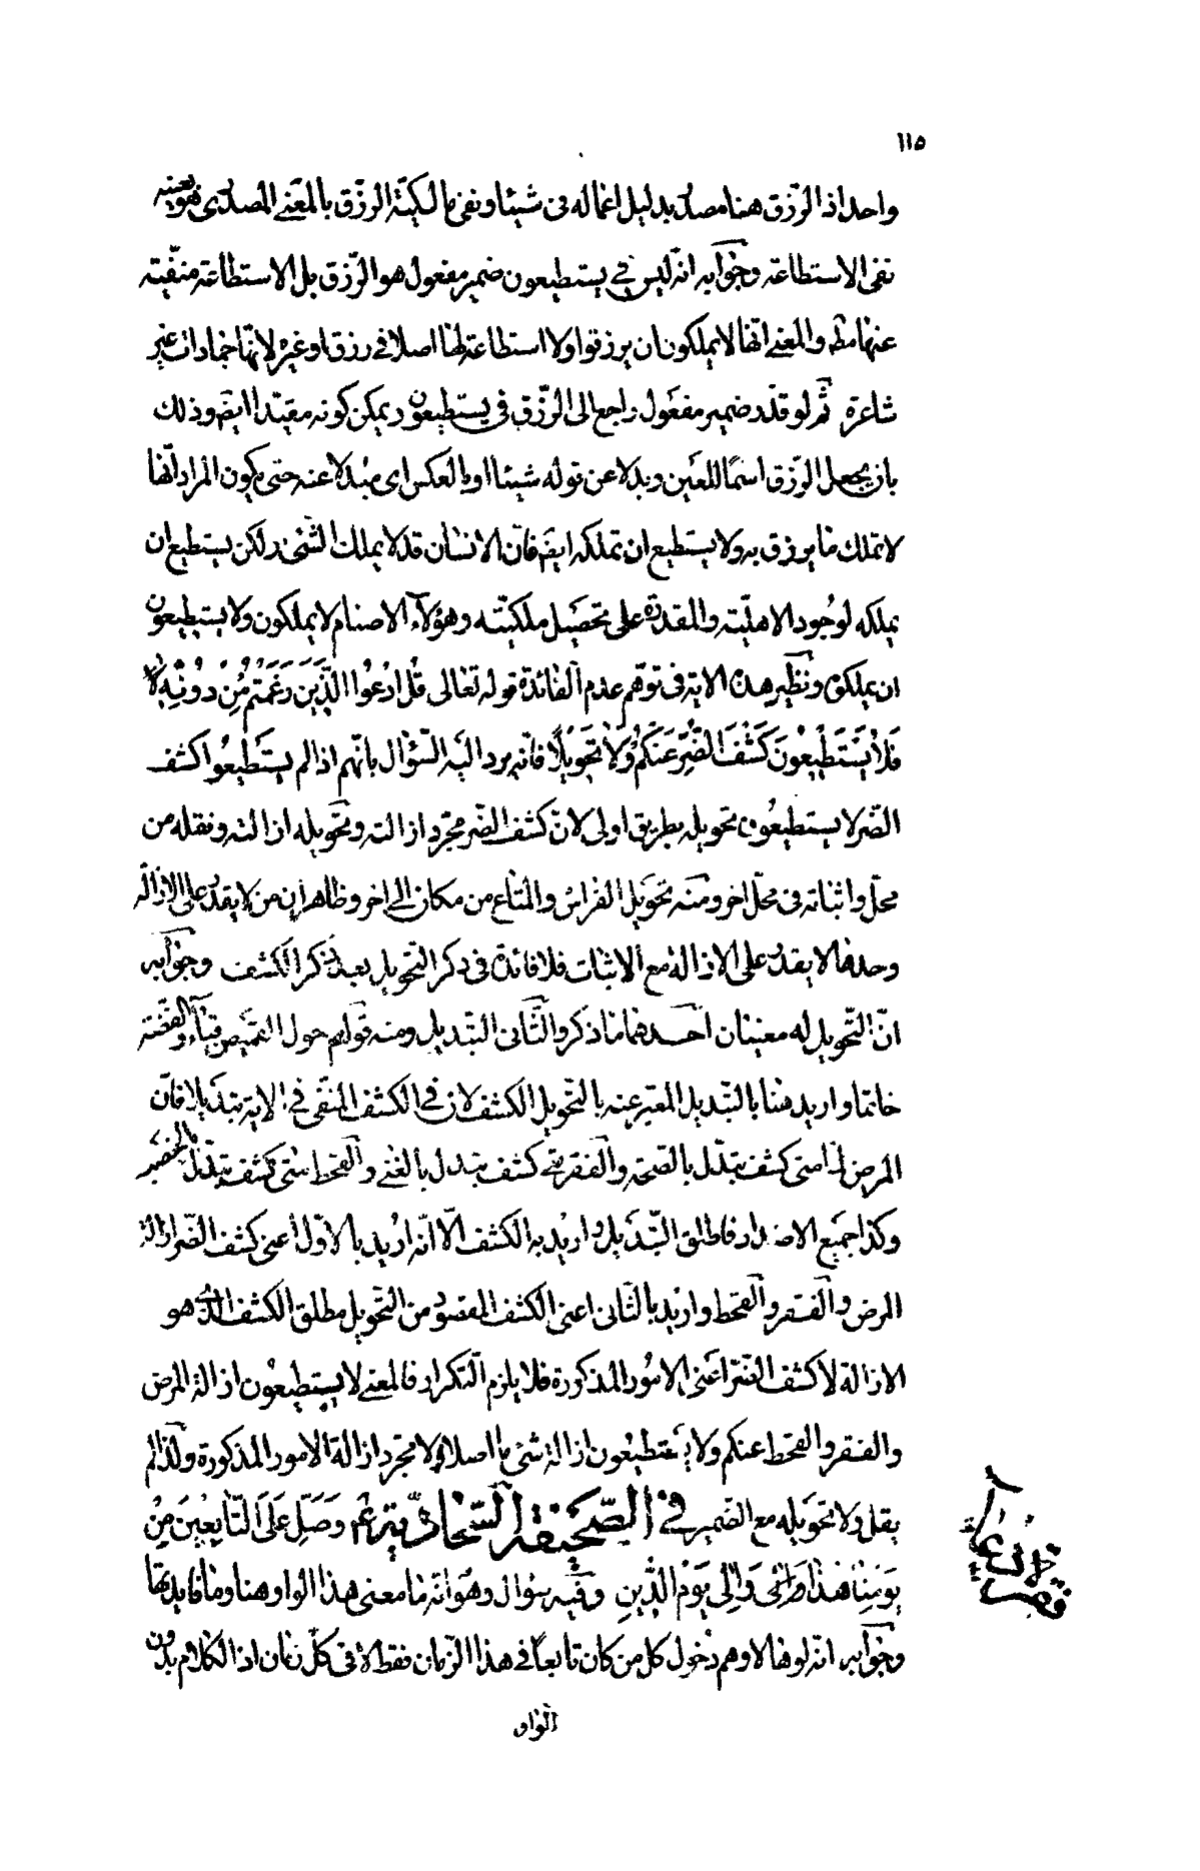 ١١٥
واحد اذ الرّزق هنا مصدر بدليل اعماله فى شيئا ونفى مالكيّة الرزق بالمعنى المصدرى هو بعينه
نفى الاستطاعة وجوابه انّه ليس في يستطيعون ضمير مفعول هو الرّزق بل الاستطاعة منفيّة
عنها مط والمعنى انّها لا يملكون ان يرزقوا ولا استطاعة لها اصلا في رزق او غيره لانّها جمادات غير
شاعرة ثم لو قدّر ضمير مفعول راجع الى الرّزق فى يستطيعون ويمكن كونه مقيّدا ايضَ وذلك
بان يجعل الرّزق اسمًا للعين وبدلا عن قوله شيئا او بالعكس اى مبدلا عنه حتى يكون المراد انّها
لا تملك ما يرزق به ولا يستطيع ان تملكه ايضَ فانّ الانسان قد لا يملك الشّئ ولكن يستطيع ان
يملكه لوجود الاهليّة والقدرة على تحصيل ملكيّته وهؤلآء الاصنام لا يملكون ولا يستطيعون
ان يملكوا ونظير هذه الاية فى توهّم عدم الفائدة قوله تعالى قُل ادْعُوا الَّذِينَ زَعَمْتُم مِّن دُونِهِ
فَلا يَسْتَطِيعُونَ كَشْفَ الضُّرِّ عَنكُمْ وَلا تَحْوِيلًا فانّه يرد اليه السّؤال بانّهم اذا لم يستَطيعُوا كشف
الضّر لا يستطيعُون تحويله بطريق اولى لانّ كشف الضّر مجرّد ازالته وتحويله ازالته ونقله من
محلّ واثباته فى محلّ اخر ومنه تحويل الفراش والمتاع من مكان الى اخر وظاهر ان من لا يقدر على الازالة
وحدها لا يقدر على الازالة مع الاثبات فلا فائدة فى ذكر التحويل بعد ذكر الكشف وجوابه
انّ التّحويل له معنيان احدهما ما ذكر والثّانى التبديل ومنه قولهم حول القميص قباء والفضّة
خاتما واريد هنا بالتبديل المعبّر عنه بالتحويل الكشف لان في الكشف المنفى في الاية تبديلا فانّ
المرض اذا متى كشف تبدّل بالصّحة والفقر متى كشف تبدل بالغنى والقحط متى كشف تبدّل بالخصب
وكذا جميع الاضداد فاطلق التّبديل واريد به الكشف الّا انّه اريد بالاوّل اعنى كشف الضّر ازالة
المرض والفقر والقحط واريد بالثانى اعنى الكشف المقصود من التحويل مطلق الكشف الذى هو
الازالة لا كشف الضّر اعنى الامور المذكورة فلا يلزم التكرار فالمعنى لا يستطيعون ازالة المرض
والفقر والقحط عنكم ولا يستطيعون ازالة شئ ما اصلا ولا مجرّد ازالة الامور المذكورة ولذا لم
يقل ولا تحويله مع الضّمير في الصّحيفة السّجّاديّة وَصَلِّ عَلَى التّابِعِينَ مِنْ
يَوْمِنا هذا وَإِلى يَوْمِ الدِّينِ وفيه سؤال وهو انّه ما معنى هذا الواو هنا وما فايدتها
وجوابه انّه لولاها لاوهم دخول كل من كان تابعا في هذا الزّمان فقط لا فى كلّ زمان اذ الكلام بدون
الواو